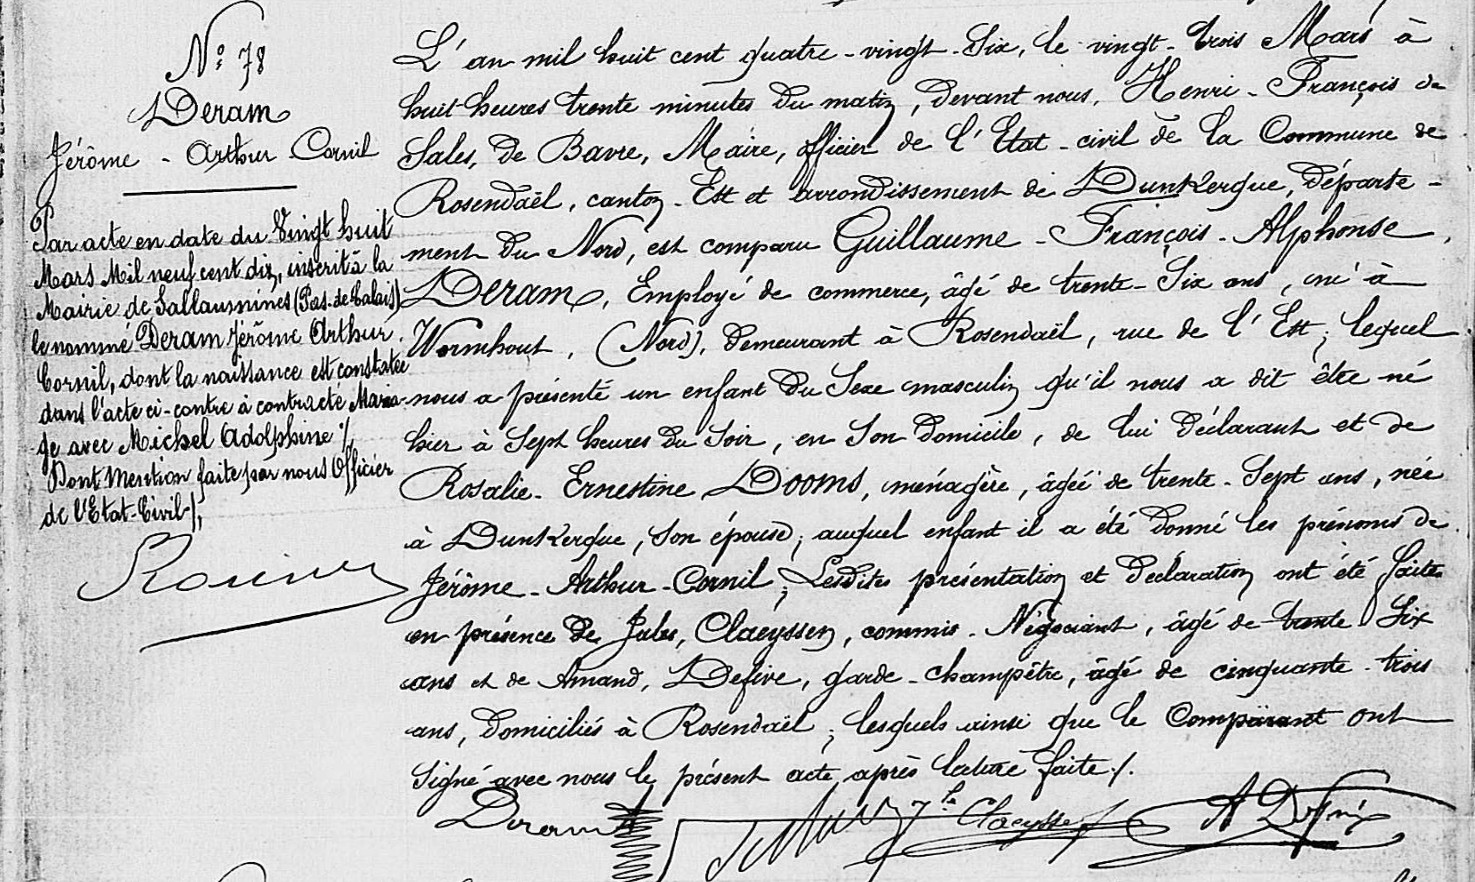 N° 78
Deram
Jérôme - Arthur Cornil
Par acte en date du Vingt huit
Mars Mil neuf cent dix, inscrit à la
Mairie de Sallaumines (Pas-de-Calais)
le nommé Deram Jérôme Arthur
Cornil, dont la naissance est constatée
dans l'acte ci-contre à contracté Maria-
ge avec Michel Adolphine ./.
Dont Mention faite par nous Officier
de l'Etat-Civil ./.
L'an mil huit cent quatre-vingt-Six, le vingt-trois Mars à
huit heures trente minutes du matin, devant nous, Henri-François de
Sales, de Bavre, Maire, officier de l'Etat-civil de la Commune de
Rosendaël, canton-Est et arrondissement de Dunkerque, départe-
ment du Nord, est comparu Guillaume-François-Alphonse,
Deram, Employé de commerce, âgé de trente-Six ans, né à
Wormhout, (Nord), demeurant à Rosendaël, rue de l'Est; lequel
nous a présenté un enfant du Sexe masculin qu'il nous a dit être né
hier à Sept heures du Soir, en Son domicile, de lui déclarant et de
Rosalie-Ernestine Dooms, ménagère, âgée de trente-Sept ans, née
à Dunkerque, Son épouse; auquel enfant il a été donné les prénoms de
Jérôme-Arthur-Cornil; Lesdites présentation et déclaration ont été faites
en présence de Jules, Claeyssen, commis-Négociant, âgé de trente Six
ans et de Amand, Defive, garde-champêtre, âgé de cinquante-trois
ans, domiciliés à Rosendaël; lesquels ainsi que le Comparant ont
Signé avec nous le présent acte après lecture faite ./.
Deram Claeyssen A